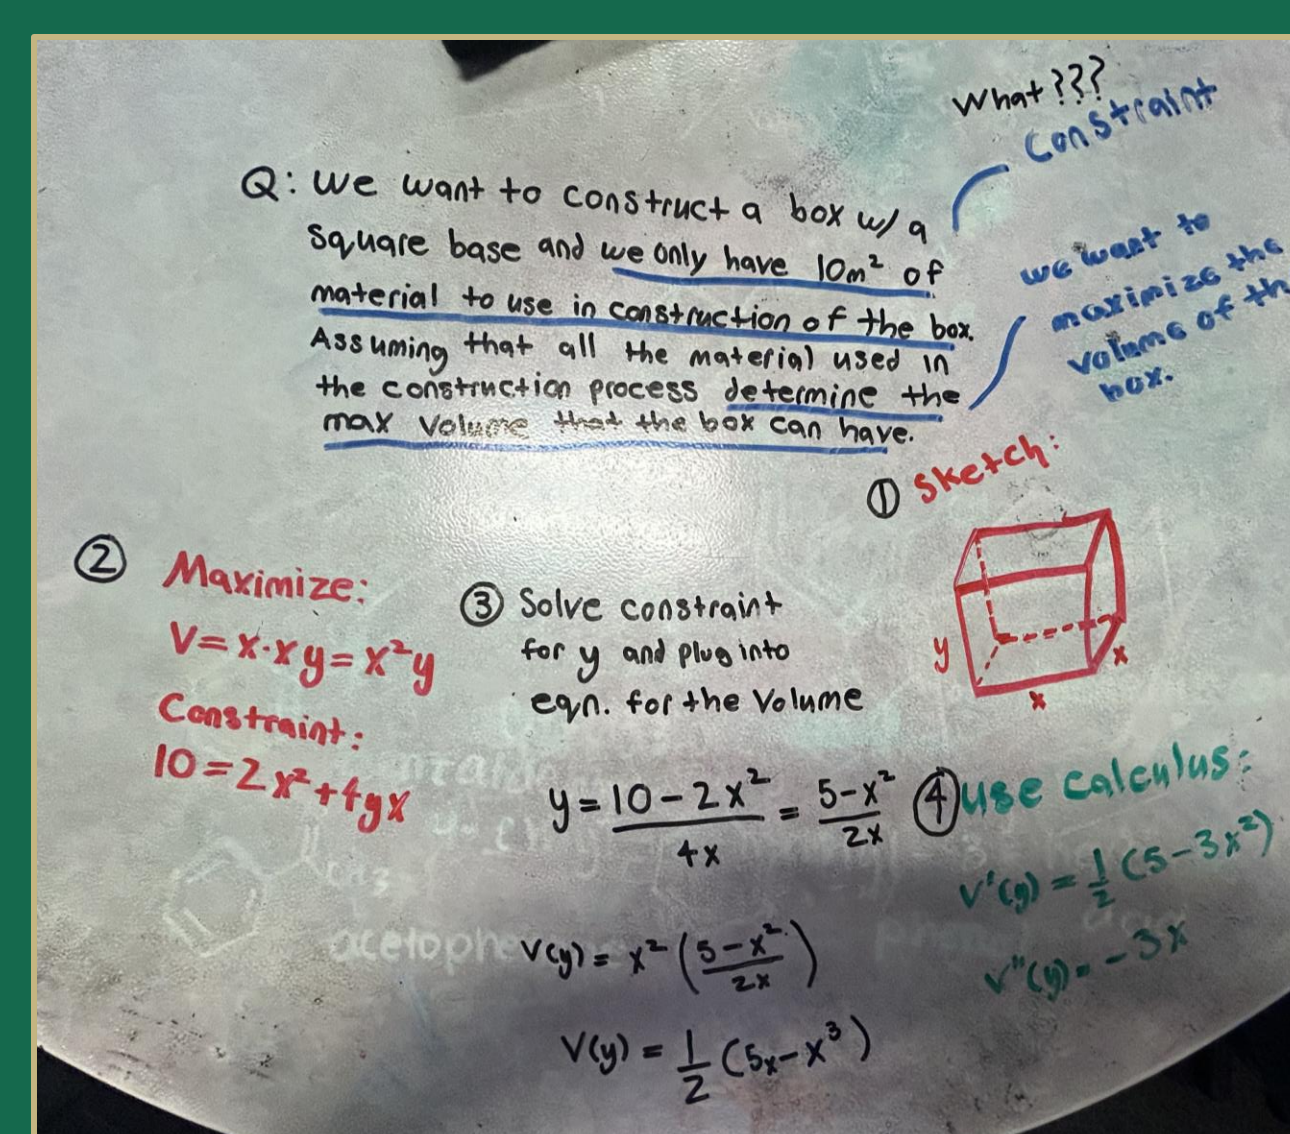 What???
Constraint
Q: We want to construct a box w/ a
square base and we only have 10m² of
material to use in construction of the box.
Assuming that all the material used in
the construction process determine the
max volume that the box can have.
we want to
maximize the
volume of th
box.
① Sketch:
y
x
x
② Maximize:
V=x·xy=x²y
Constraint:
10=2x²+4yx
③ Solve constraint
for y and plug into
eqn. for the Volume
y = (10-2x²)/4x = (5-x²)/2x
V(y) = x² ((5-x²)/2x)
V(y) = 1/2 (5x-x³)
④ use calculus:
V'(y) = 1/2 (5-3x²)
V"(y) = -3x
CH3
acetophe
acid